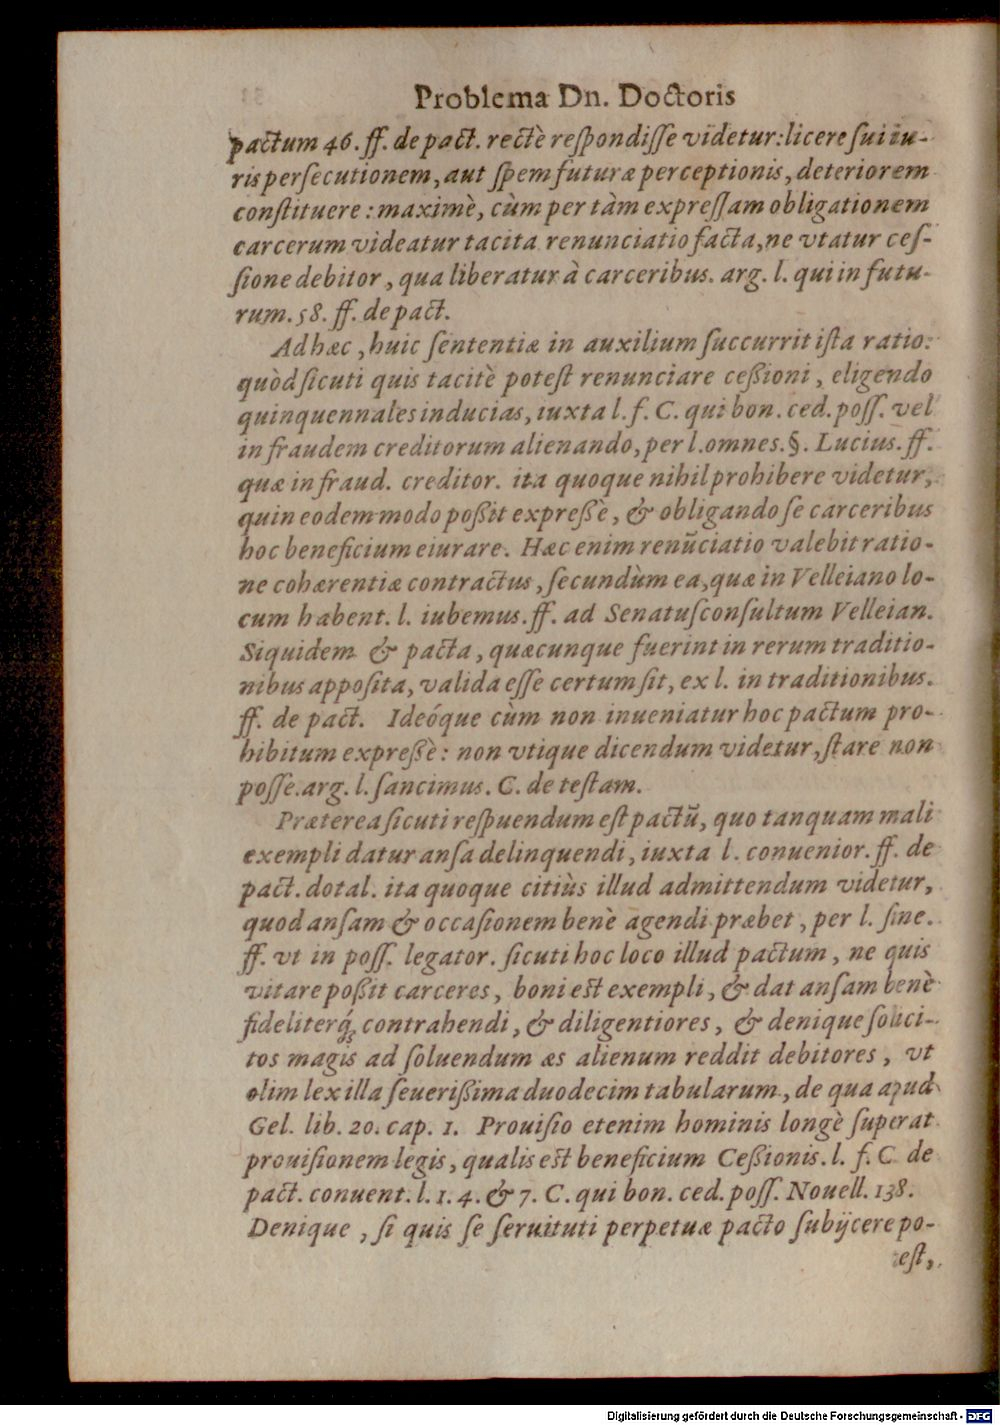 Problema Dn. Doctoris
pactum 46. ff. de pact. rectè reſpondiſſe videtur: licere ſui iu-
ris perſecutionem, aut ſpem futuræ perceptionis, deteriorem
conſtituere: maximè, cùm per tàm expreſſam obligationem
carcerum videatur tacita renunciatio facta, ne vtatur ceſ-
ſione debitor, qua liberatur à carceribus. arg. l. qui in futu-
rum. 58. ff. de pact.
Ad hæc, huic ſententiæ in auxilium ſuccurrit iſta ratio:
quòd ſicuti quis tacitè poteſt renunciare ceßioni, eligendo
quinquennales inducias, iuxta l. f. C. qui bon. ced. poſſ. vel
in fraudem creditorum alienando, per l. omnes. §. Lucius. ff.
quæ in fraud. creditor. ita quoque nihil prohibere videtur,
quin eodem modo poßit expreßè, & obligando ſe carceribus
hoc beneficium eiurare. Hæc enim renūciatio valebit ratio-
ne cohærentiæ contractus, ſecundùm ea, quæ in Velleiano lo-
cum habent. l. iubemus. ff. ad Senatuſconſultum Velleian.
Siquidem & pacta, quæcunque fuerint in rerum traditio-
nibus appoſita, valida eſſe certum ſit, ex l. in traditionibus.
ff. de pact. Ideóque cùm non inueniatur hoc pactum pro-
hibitum expreßè: non vtique dicendum videtur, ſtare non
poſſe. arg. l. ſancimus. C. de teſtam.
Præterea ſicuti reſpuendum eſt pactū, quo tanquam mali
exempli datur anſa delinquendi, iuxta l. conuenior. ff. de
pact. dotal. ita quoque citiùs illud admittendum videtur,
quod anſam & occaſionem benè agendi præbet, per l. ſine.
ff. vt in poſſ. legator. ſicuti hoc loco illud pactum, ne quis
vitare poßit carceres, boni eſt exempli, & dat anſam benè
fideliterq́ꝫ contrahendi, & diligentiores, & denique ſolici-
tos magis ad ſoluendum æs alienum reddit debitores, vt
olim lex illa ſeuerißima duodecim tabularum, de qua apud
Gel. lib. 20. cap. 1. Prouiſio etenim hominis longè ſuperat
prouiſionem legis, qualis eſt beneficium Ceßionis. l. f. C de
pact. conuent. l. 1. 4. & 7. C. qui bon. ced. poſſ. Nouell. 138.
Denique, ſi quis ſe ſeruituti perpetuæ pacto ſubijcere po-
teſt,
Digitalisierung gefördert durch die Deutsche Forschungsgemeinschaft - DFG